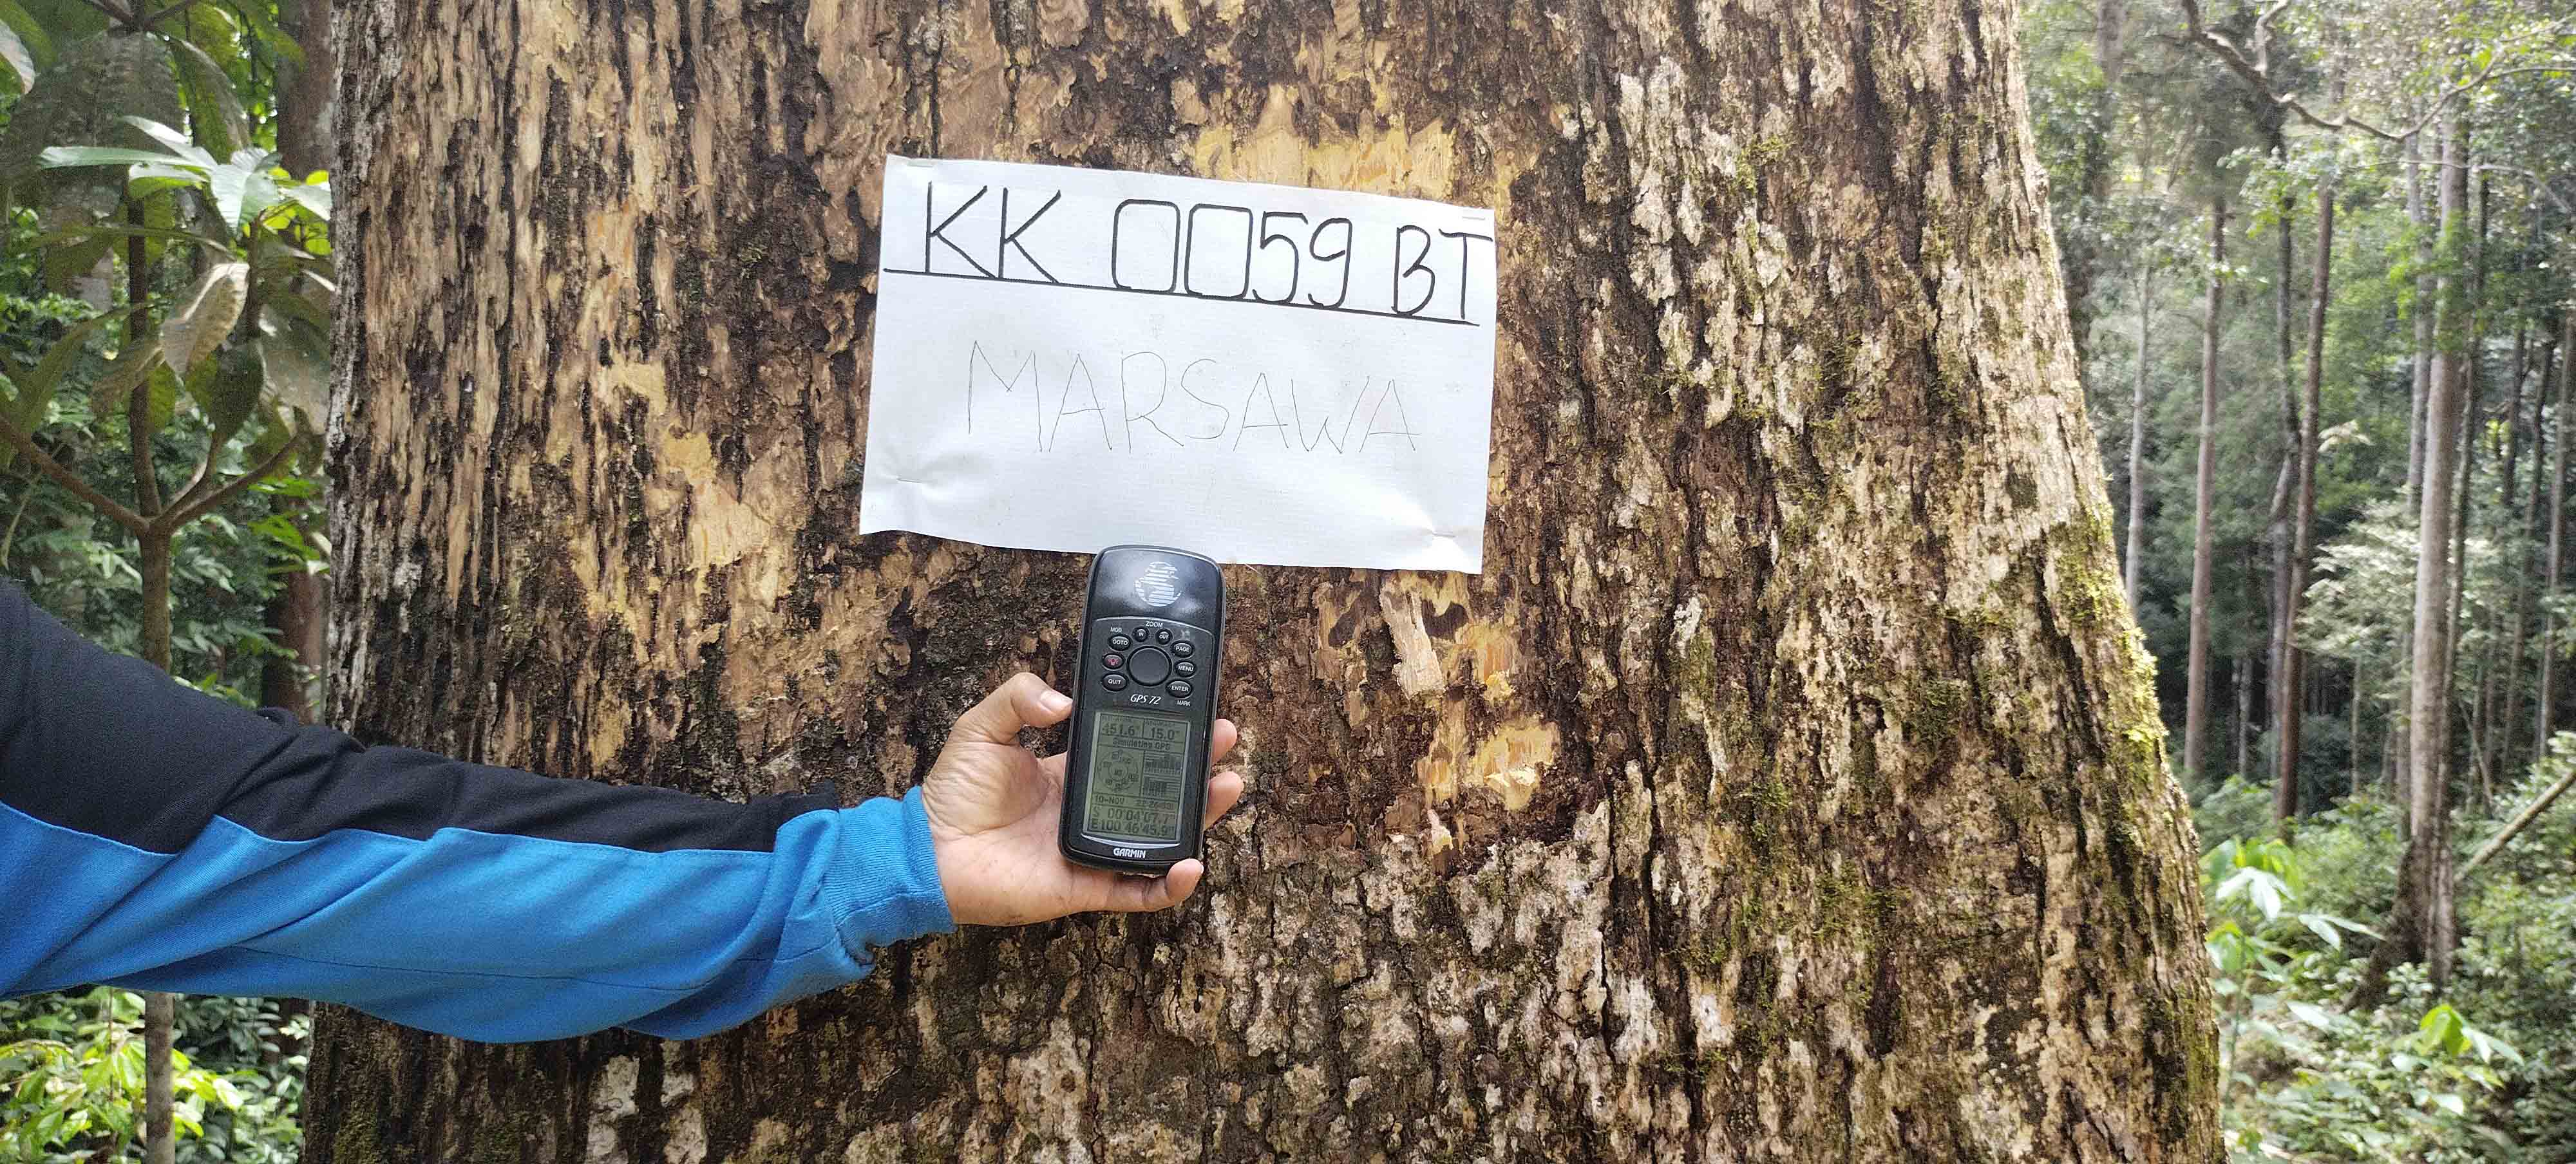 KK 0059 BT
MARSAWA
ZOOM
MOB
GOTO
IN
OUT
PAGE
MENU
QUIT
ENTER
GPS 72
MARK
451.6° 15.0°
Simulating GPS
10-NOV
S 00°04'07.7"
E100°46'45.9"
GARMIN